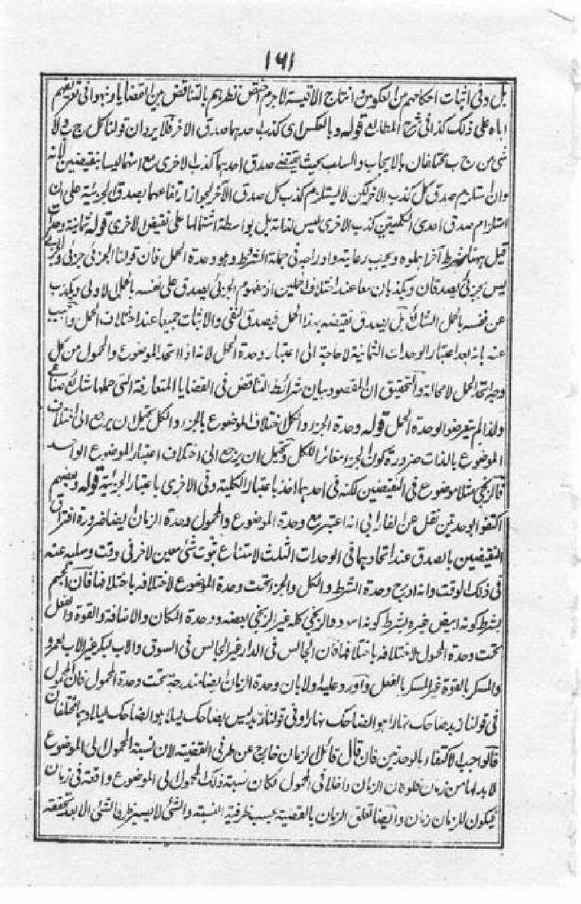 ۱۶۱
بل وفی اثبات احکامهم من العکوس و انتاج الاقیسة لاجرم خص نظرهم بالتناقض بین القضایا ونبهوا فی تعریفهم
ایاه علی ذلک کذا فی شرح المطالع قوله و بالعکس ای کذب احدیهما صدق الاخر فلا یردان قولنا کل ج ب ولا
شئ من ج ب مختلفان بالایجاب والسلب بحیث یقتضی صدق احدیهما کذب الاخری مع انهما لیسا بنقیضین لانه
وان استلزم صدق کل کذب الاخر لکن لا یستلزم کذب کل صدق الاخر لجواز ارتفاعهما بصدق الجزئیة علی ان
استلزام صدق احدی الکلیتین کذب الاخری لیس لذاته بل بواسطة اشتمالها علی نقیض الاخری قوله ثمانیة وحدات
قیل ههنا شرط آخر اهملوه ویجب رعایته وادراجه فی جملة الشرط وهو وحدة الحمل فان قولنا الجزئی جزئی والجزئی
لیس بجزئی یصدقان ویکذبان معا عند اختلاف الحملین اذ مفهوم الجزئی یصدق علی نفسه بالحمل الاولی ویکذب
عن نفسه بالحمل الشائع بل یصدق نقیضه بهذا الحمل فیصدق النفی والاثبات جمیعا عند اختلاف الحمل واجیب
عنه بانه بعد اعتبار الوحدات الثمانیة لا حاجة الی اعتبار وحدة الحمل لانه اذا اتحد الموضوع والمحمول من کل
وجه اتحد الحمل لا محالة والتحقیق ان المقصود بیان شرائط التناقض فی القضایا المتعارفة التی حملها شائع صناعی
ولذا لم یتعرضوا لوحدة الحمل قوله وحدة الجزء والکل اختلاف الموضوع بالجزء والکل یحتمل ان یرجع الی اختلاف
الموضوع بالذات ضرورة کون الجزء مغائرا للکل ویحتمل ان یرجع الی اختلاف اعتبار الموضوع الواحد
فالزنجی مثلا موضوع فی النقیضین لکنه فی احدیهما اخذ باعتبار الکلیة وفی الاخری باعتبار الجزئیة قوله وبعضهم
اکتفوا بوحدتین نقل عن الفارابی انه اعتبر مع وحدة الموضوع والمحمول وحدة الزمان ایضا ضرورة افتراق
النقیضین بالصدق عند اتحادهما فی الوحدات الثلث لامتناع ثبوت شئ معین لاخر فی وقت وسلبه عنه
فی ذلک الوقت وانه ادرج وحدة الشرط والکل والجزء تحت وحدة الموضوع لاختلافه باختلافها فان الجسم
بشرط کونه ابیض غیره بشرط کونه اسود والزنجی کله غیر الزنجی بعضه ووحدة المکان والاضافة والقوة والفعل
تحت وحدة المحمول لاختلافه باختلافها فان الجالس فی الدار غیر الجالس فی السوق والاب لبکر غیر الاب لعمرو
والمسکر بالقوة غیر المسکر بالفعل واورد علیه اولا بان وحدة الزمان ایضا مندرجة تحت وحدة المحمول فان المحمول
فی قولنا زید ضاحک نهارا هو الضاحک نهارا وفی قولنا زید لیس بضاحک لیلا هو الضاحک لیلا وهما مختلفان
فالواجب الاکتفاء بالوحدتین فان قال قائل الزمان خارج عن طرفی القضیة لان نسبة المحمول الی الموضوع
لابد لها من زمان فلو کان الزمان داخلا فی المحمول لکان نسبة ذلک المحمول الی الموضوع واقعة فی زمان
فیکون للزمان زمان وایضا تعلق الزمان بالقضیة بحسب ظرفیة النسبة والشئ لا یصیر ظرفا لشئ الا بعد تحققه